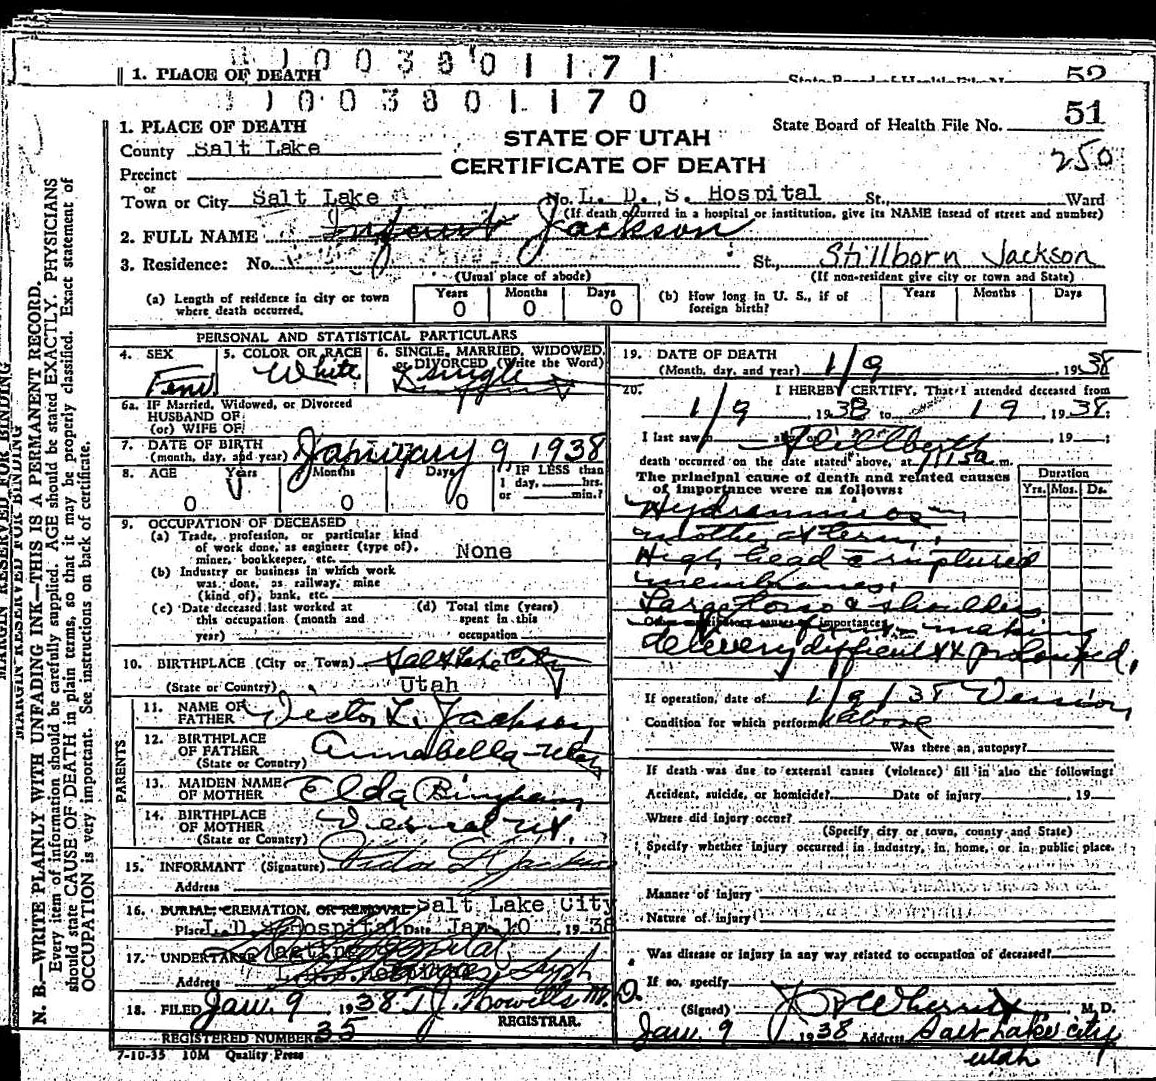 1003801171
1. PLACE OF DEATH State Board of Health File No. 52
1003801170
51
1. PLACE OF DEATH
STATE OF UTAH
State Board of Health File No.
County Salt Lake
CERTIFICATE OF DEATH
250
Precinct
or
Town or City Salt Lake No. L. D. S. Hospital St., Ward
(If death occurred in a hospital or institution, give its NAME instead of street and number)
2. FULL NAME Infant Jackson
3. Residence: No. St., Stillborn Jackson
(Usual place of abode) (If non-resident give city or town and State)
(a) Length of residence in city or town where death occurred. Years 0 Months 0 Days 0
(b) How long in U. S., if of foreign birth? Years Months Days
PERSONAL AND STATISTICAL PARTICULARS
4. SEX Fem
5. COLOR OR RACE White
6. SINGLE, MARRIED, WIDOWED, or DIVORCED (Write the Word) Single
6a. IF Married, Widowed, or Divorced
HUSBAND OF
(or) WIFE OF
7. DATE OF BIRTH
(month, day, and year) January 9 1938
8. AGE Years Months Days IF LESS than
1 day, hrs.
or min.?
0 0 0
9. OCCUPATION OF DECEASED
(a) Trade, profession, or particular kind
of work done, as engineer (type of),
miner, bookkeeper, etc. None
(b) Industry or business in which work
was done, as railway, mine
(kind of), bank, etc.
(c) Date deceased last worked at
this occupation (month and
year)
(d) Total time (years)
spent in this
occupation
10. BIRTHPLACE (City or Town) Salt Lake City
(State or Country) Utah
PARENTS
11. NAME OF
FATHER Victor L. Jackson
12. BIRTHPLACE
OF FATHER Annabella Utah
(State or Country)
13. MAIDEN NAME
OF MOTHER Elda Bingham
14. BIRTHPLACE
OF MOTHER Vernal Ut.
(State or Country)
15. INFORMANT (Signature) Victor L Jackson
Address
16. BURIAL, CREMATION, OR REMOVAL Salt Lake City
Place L. D. S. Hospital Date Jan 10, 1938
17. UNDERTAKER
Address
18. FILED Jan. 9 1938 T. J. Howells M. D.
REGISTRAR.
REGISTERED NUMBER 35
7-10-35 10M Quality Press
19. DATE OF DEATH
(Month, day, and year) 1/9 1938
20. I HEREBY CERTIFY, That I attended deceased from
1/9, 1938 to 1 9, 1938:
I last saw Stillbirth, 19 ;
death occurred on the date stated above, at 7:15a m.
The principal cause of death and related causes
of importance were as follows:
Duration
Yrs. Mos. Ds.
Hydramnios in
mother at term.
High head c ruptured
membranes.
Large torso & shoulders
making
delivery difficult & prolonged.
If operation, date of 1/9/38 Version
Condition for which performed above
Was there an autopsy?
If death was due to external causes (violence) fill in also the following:
Accident, suicide, or homicide? Date of injury 19
Where did injury occur?
(Specify city or town, county and State)
Specify whether injury occurred in industry, in home, or in public place.
Manner of injury
Nature of injury
Was disease or injury in any way related to occupation of deceased?
If so, specify
(Signed) M. D.
Jan. 9 1938 Address Salt Lake City
Utah
MARGIN RESERVED FOR BINDING
MARGIN RESERVED FOR BINDING
N. B.—WRITE PLAINLY WITH UNFADING INK—THIS IS A PERMANENT RECORD.
Every item of information should be carefully supplied. AGE should be stated EXACTLY. PHYSICIANS
should state CAUSE OF DEATH in plain terms, so that it may be properly classified. Exact statement of
OCCUPATION is very important. See instructions on back of certificate.